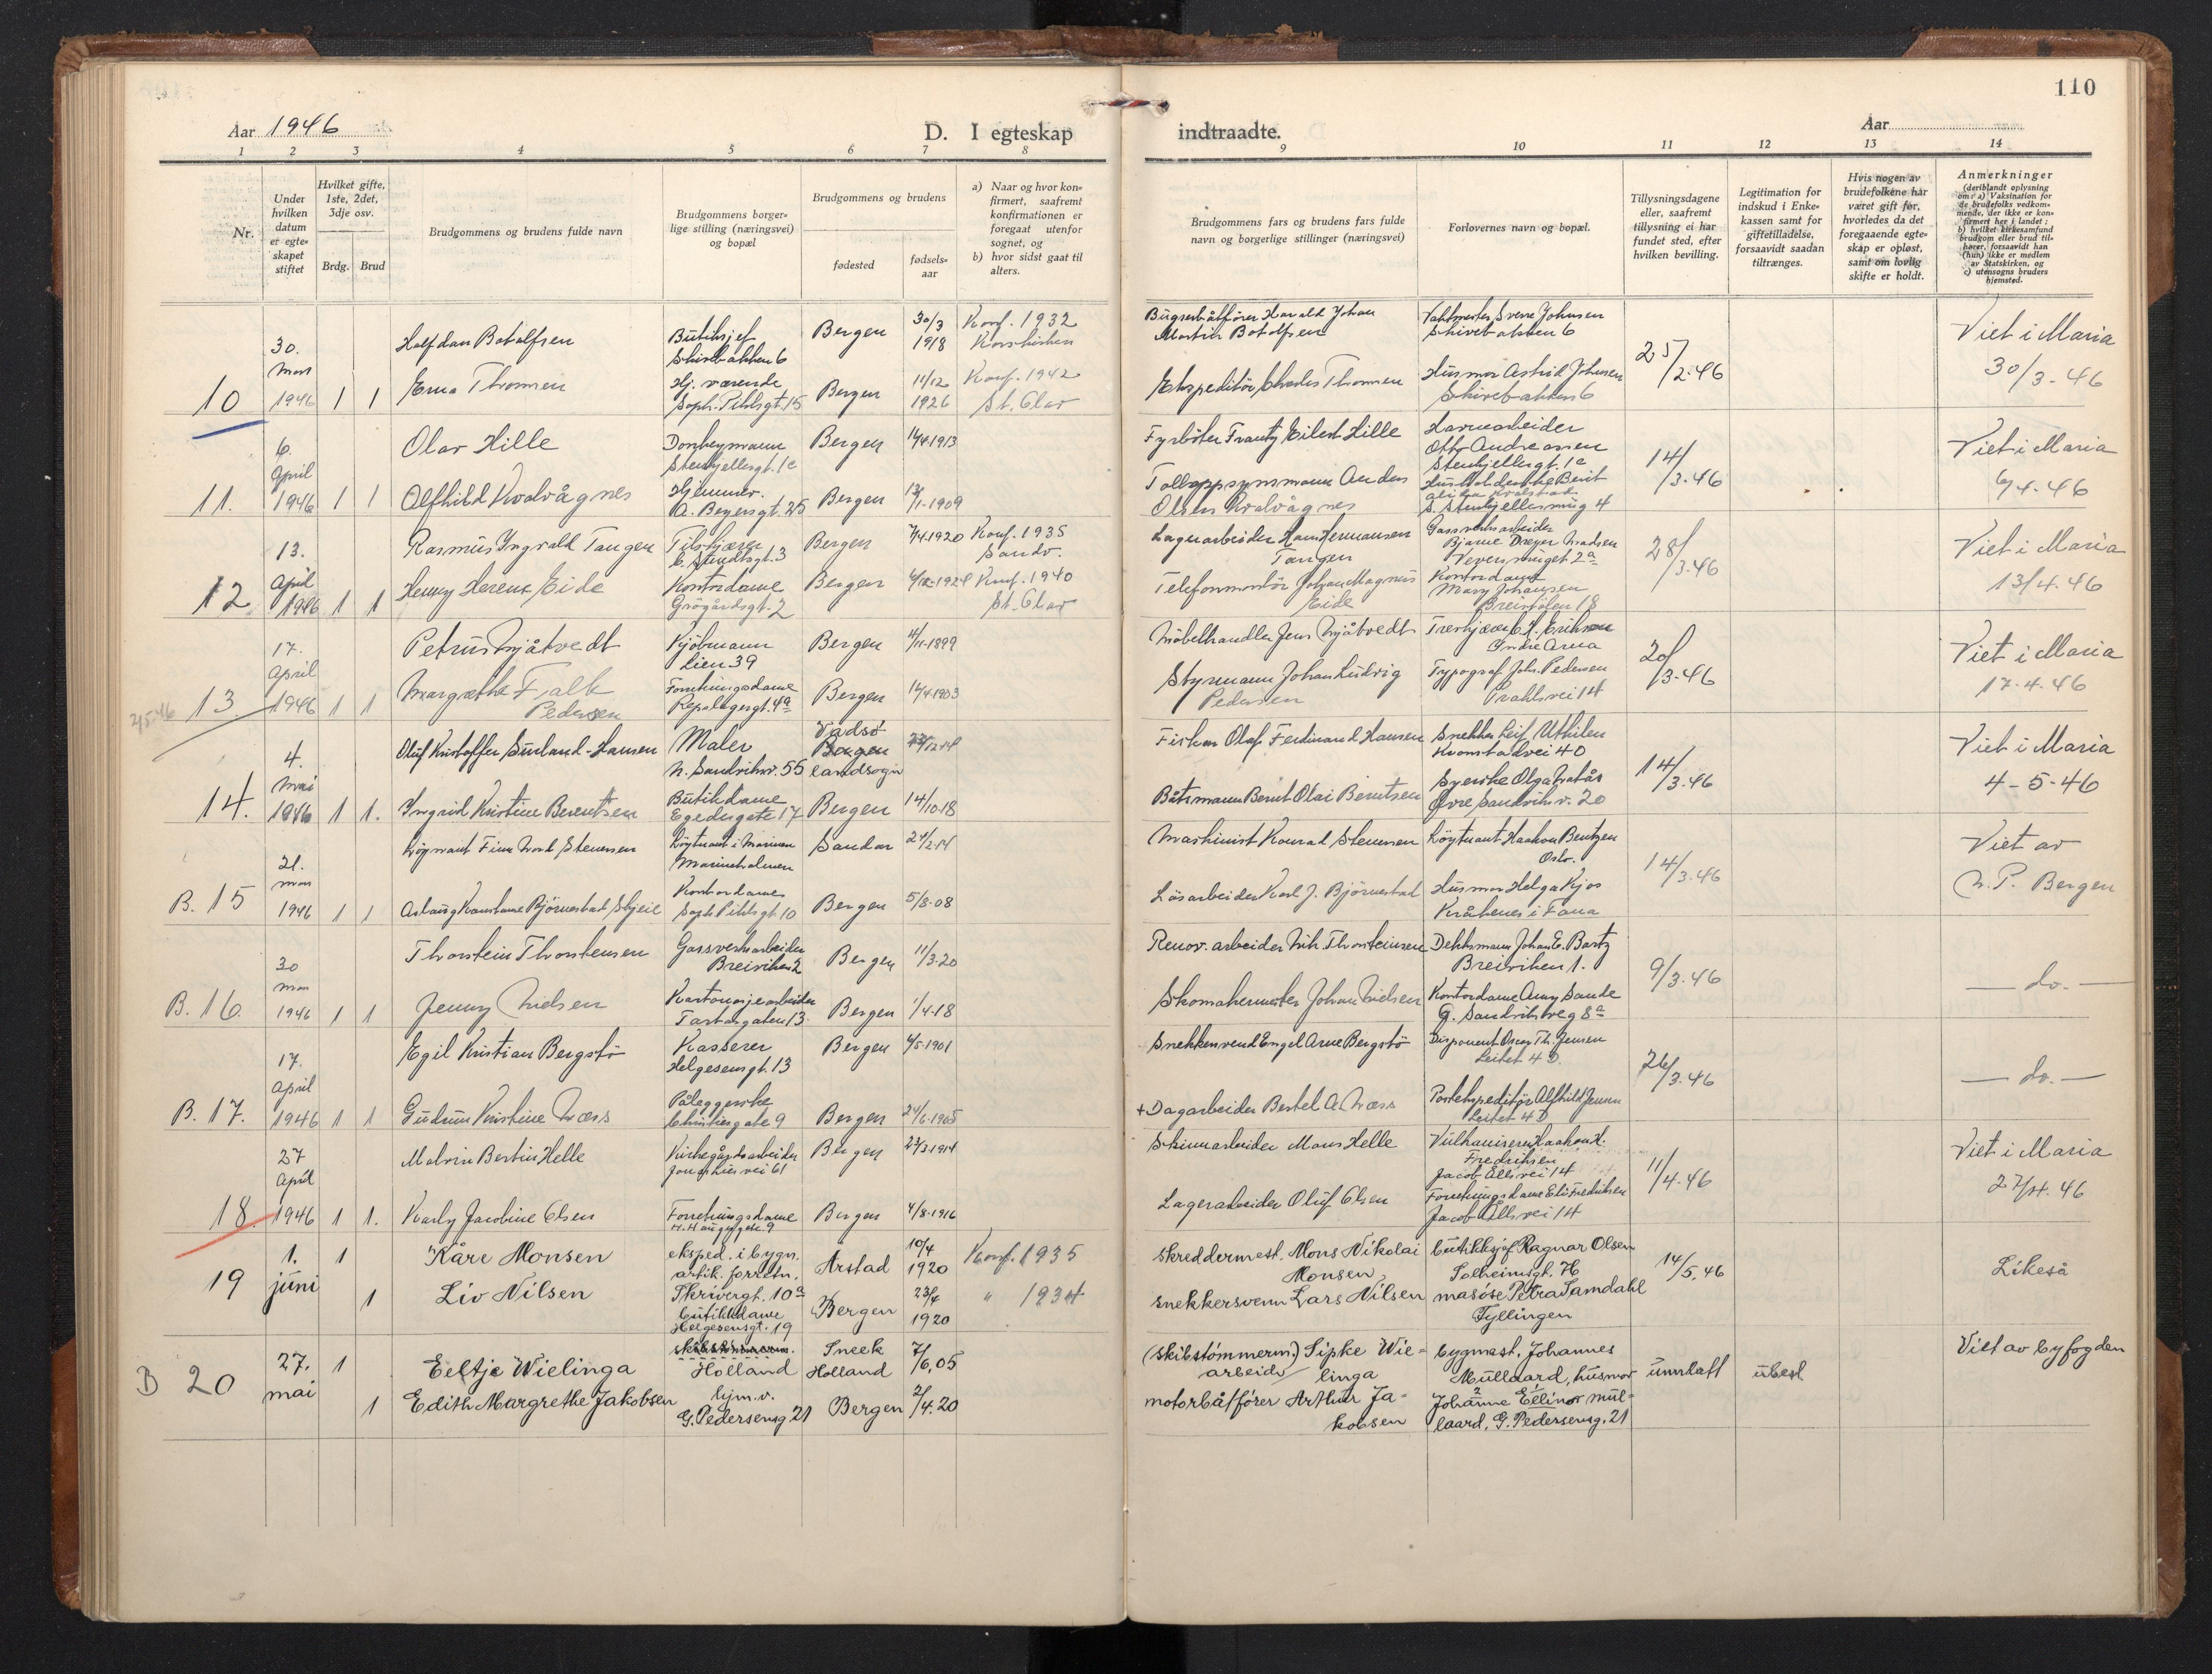 110
Aar 1946
D. I egteskap
indtraadte.
Aar
1 2 3 4 5 6 7 8 9 10 11 12 13 14
Nr.
Under hvilken datum er egteskapet stiftet
Hvilket gifte, 1ste, 2det, 3dje osv.
Brdg. Brud
Brudgommens og brudens fulde navn
Brudgommens borgerlige stilling (næringsvei) og bopæl
Brudgommens og brudens
fødested
fødselsaar
a) Naar og hvor konfirmert, saafremt konfirmationen er foregaat utenfor sognet, og
b) hvor sidst gaat til alters.
Brudgommens fars og brudens fars fulde navn og borgerlige stillinger (næringsvei)
Forlovernes navn og bopæl.
Tillysningsdagene eller, saafremt tillysning ei har fundet sted, efter hvilken bevilling.
Legitimation for indskud i Enkekassen samt for giftetilladelse, forsaavidt saadan tiltrænges.
Hvis nogen av brudefolkene har været gift før, hvorledes da det foregaaende egteskap er opløst, samt om lovlig skifte er holdt.
Anmerkninger
(deriblandt oplysning om: a) Vaksination for de brudefolks vedkommende, der ikke er konfirmert her i landet; b) hvilket kirkesamfund brudgom eller brud tilhører, forsaavidt han (hun) ikke er medlem av Statskirken, og c) utensogns bruders hjemsted.
10 30. mars 1946 1 1
Halfdan Botolfsen
Butiksjef
Skivebakken 6
Bergen 30/3 1918 Konf. 1932
Korskirken
Erna Thomsen
Hj. værende
Soph. Pihlsgt. 15
Bergen 11/12 1926 Konf. 1942
St. Olav
Bugserbåtfører Harald Johan
Martin Botolfsen
Ekspeditør Charles Thomsen
Vaktmester Sverre Johnsen
Skivebakken 6
Husmor Astrid Johnsen
Skivebakken 6
25/2.46
Viet i Maria
30/3-46
11. 6. April 1946 1 1
Olav Hille
Donkeymann
Stenkjellergt. 1c
Bergen 14/4.1913
Alfhild Kvalvågnes
Hjemmev.
A. Beyersgt. 25
Bergen 13/1-1909
Fyrbøter Frantz Eilert Hille
Tolloppsynsmann Anders
Olsen Kvalvågnes
Havnearbeider
Otto Andreassen
Stenkjellergt. 1c
S. Stenkjellersmug 4
14/3.46
Viet i Maria
6/4-46
12 13. April 1946 1 1
Rasmus Ingvald Tangen
Tilskjærer
C. Sundtsgt. 3
Bergen 7/4.1920 Konf. 1935
Sandv.
Henny Herene Eide
Kontordame
Grøgårdsgt. 2
Bergen Konf. 1940
St. Olav
Lagerarbeider Hans Hermansen
Tangen
Telefonmontør Johan Magnus
Eide
Gassverksarbeider
Bjarne Dreyer Madsen
Veversmuget 2a
Kontordame
Mary Johansen
Breistølen 18
28/3.46
Viet i Maria
13/4.46
2/5-46
13 17. April 1946 1 1
Petrus Mjåtvedt
Kjøbmann
Lien 39
Bergen 4/11-1899
Margrethe Falk
Pedersen
Forretningsdame
Repslagergt. 4a
Bergen 14/4.1903
Møbelhandler Jens Mjåtvedt
Styrmann Johan Ludvig
Pedersen
Treskjærer C. K. Eriksen
Indre Arna
Typograf Johs. Pedersen
Prahlsvei 14
20/3-46
Viet i Maria
17-4.46
14. 4. Mai 1946 1 1.
Oluf Kristoffer Sunland-Hansen
Maler
N. Sandviksv. 55
Vadsø
Bergen
landsogn
23/12.14
Ingrid Kristine Berentsen
Butikdame
Egedesgate 17
Bergen 14/10.18
Fisker Olaf Ferdinand Hansen
Båtsmann Bernt Olai Berntsen
Snekker Leif Utkilen
Kvamstadvei 40
Syerske Olga Natås
Øvre Sandviksv. 20
14/3.46
Viet i Maria
4-5-46
B. 15 21. mars 1946 1 1
Løytnant Finn Nord Stenersen
Løytnant i Marinen
Marineholmen
Sandar 24/2.14
Aslaug Konstanse Bjørnestad Skjeie
Kontordame
Soph. Pihlsgt. 10
Bergen 5/8-08
Maskinist Konrad Stenersen
Løsarbeider Karl J. Bjørnestad
Løytnant Haakon Bentzen
Oslo.
Husmor Helga Kjos
Kråkenes i Fana
14/3.46
Viet av
N. P. Bergen
B. 16. 30 mars 1946 1 1
Thorstein Thorstensen
Gassverksarbeider
Breiviken 2
Bergen 11/3.20
Jenny Nielsen
Kartonasjearbeider
Tartargaten 13.
Bergen 1/4.18
Renov. arbeider Nik. Thorsteinsen
Skomakermester Johan Nielsen
Dekksmann Johan E. Bartz
Breiviken 1.
Kontordame Anny Sande
G. Sandviksveg 8a
9/3.46
— do. —
B. 17. 17. April 1946 1 1
Egil Kristian Bergstø
Kasserer
Helgesensgt. 13
Bergen 4/5.1901
Gudrun Kristine Næss
Påleggerske
Christiesgate 9
Bergen 24/6.1905
Snekkersvend Engel Arne Bergstø
+ Dagarbeider Bertel A. Næss
Disponent Oscar Th. Jensen
Leitet 4D
Postekspeditør Alfhild Jensen
Leitet 4D
26/3.46
— do. —
18. 27 April 1946 1 1.
Malvin Bertin Helle
Kirkegårdsarbeider
Bergen 23/3.1914
Karly Jacobine Olsen
Forretningsdame
Bergen 4/8.1916
Skinnarbeider Mons Helle
Lagerarbeider Oluf Olsen
Vulkaniserer Haakon H.
Fredriksen
Jacob Alls vei 14
Forretningsdame Eli Fredriksen
Jacob Alls vei 14
11/4.46
Viet i Maria
27/4.46
19 1. juni 1 1
Kåre Monsen
eksped. i bygn.
artik. forretn.
Årstad 10/4 1920 Konf. 1935
Liv Nilsen
Skrivergt. 10a
butikkdame
Helgesensgt. 19
Bergen 23/4 1920 " 1934
Skreddermest. Mons Nikolai
Monsen
snekkersvenn Lars Nilsen
butikksjef Ragnar Olsen
Solheimsgt. 76
masøse Petra Samdahl
Fyllingen
14/5.46
Likeså
B 20 27. mai 1 1
Eeltje Wielinga
Holland
Sneek
Holland
7/6.05
Edith Margrethe Jakobsen
hjm.v.
G. Pedersensg 21
Bergen 2/4.20
(skibstømmerm.) Sipke Wie-
arbeider linga
motorbåtfører Arthur Ja-
kobsen
bygmest. Johannes
Mullaard, husmor
Johanne Ellinor Mul-
laard, G. Pedersensg. 21
unntatt
ubest
Viet av byfogden